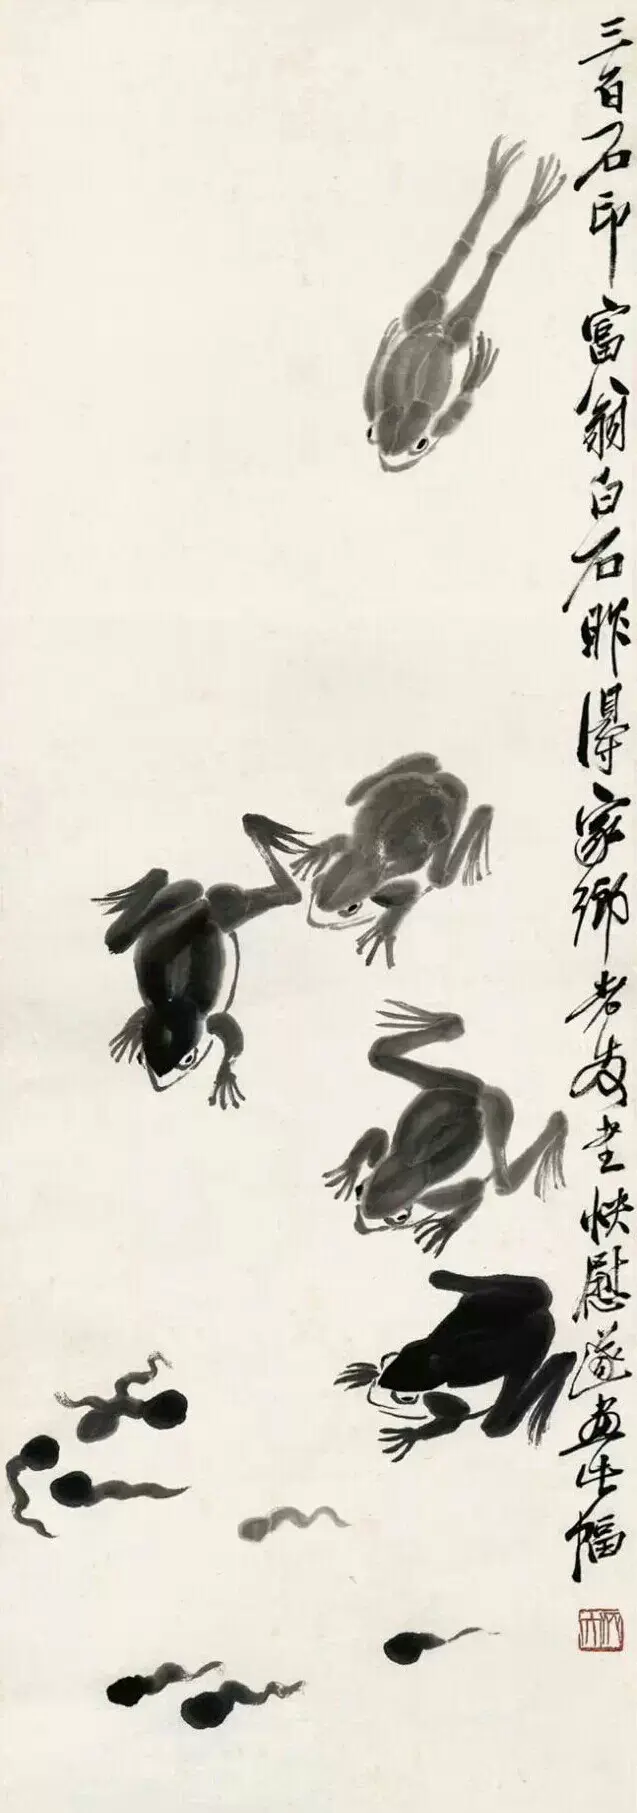 三百石印富翁白石昨得家乡老友书快慰遂画此幅